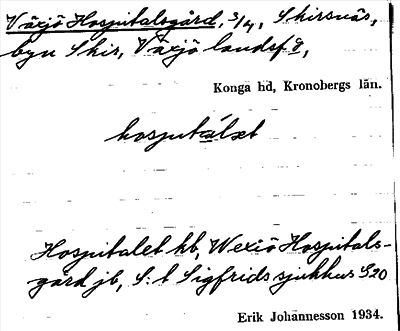 Växjö Hospitalsgård, 3/4, Skirsnäs,
byn Skir, Växjö landsf8,
Konga hd, Kronobergs län.
hospitálət
Hospitalet kb, Wexiö Hospitals-
gård jb, S:t Sigfrids sjukhus S20
Erik Johannesson 1934.